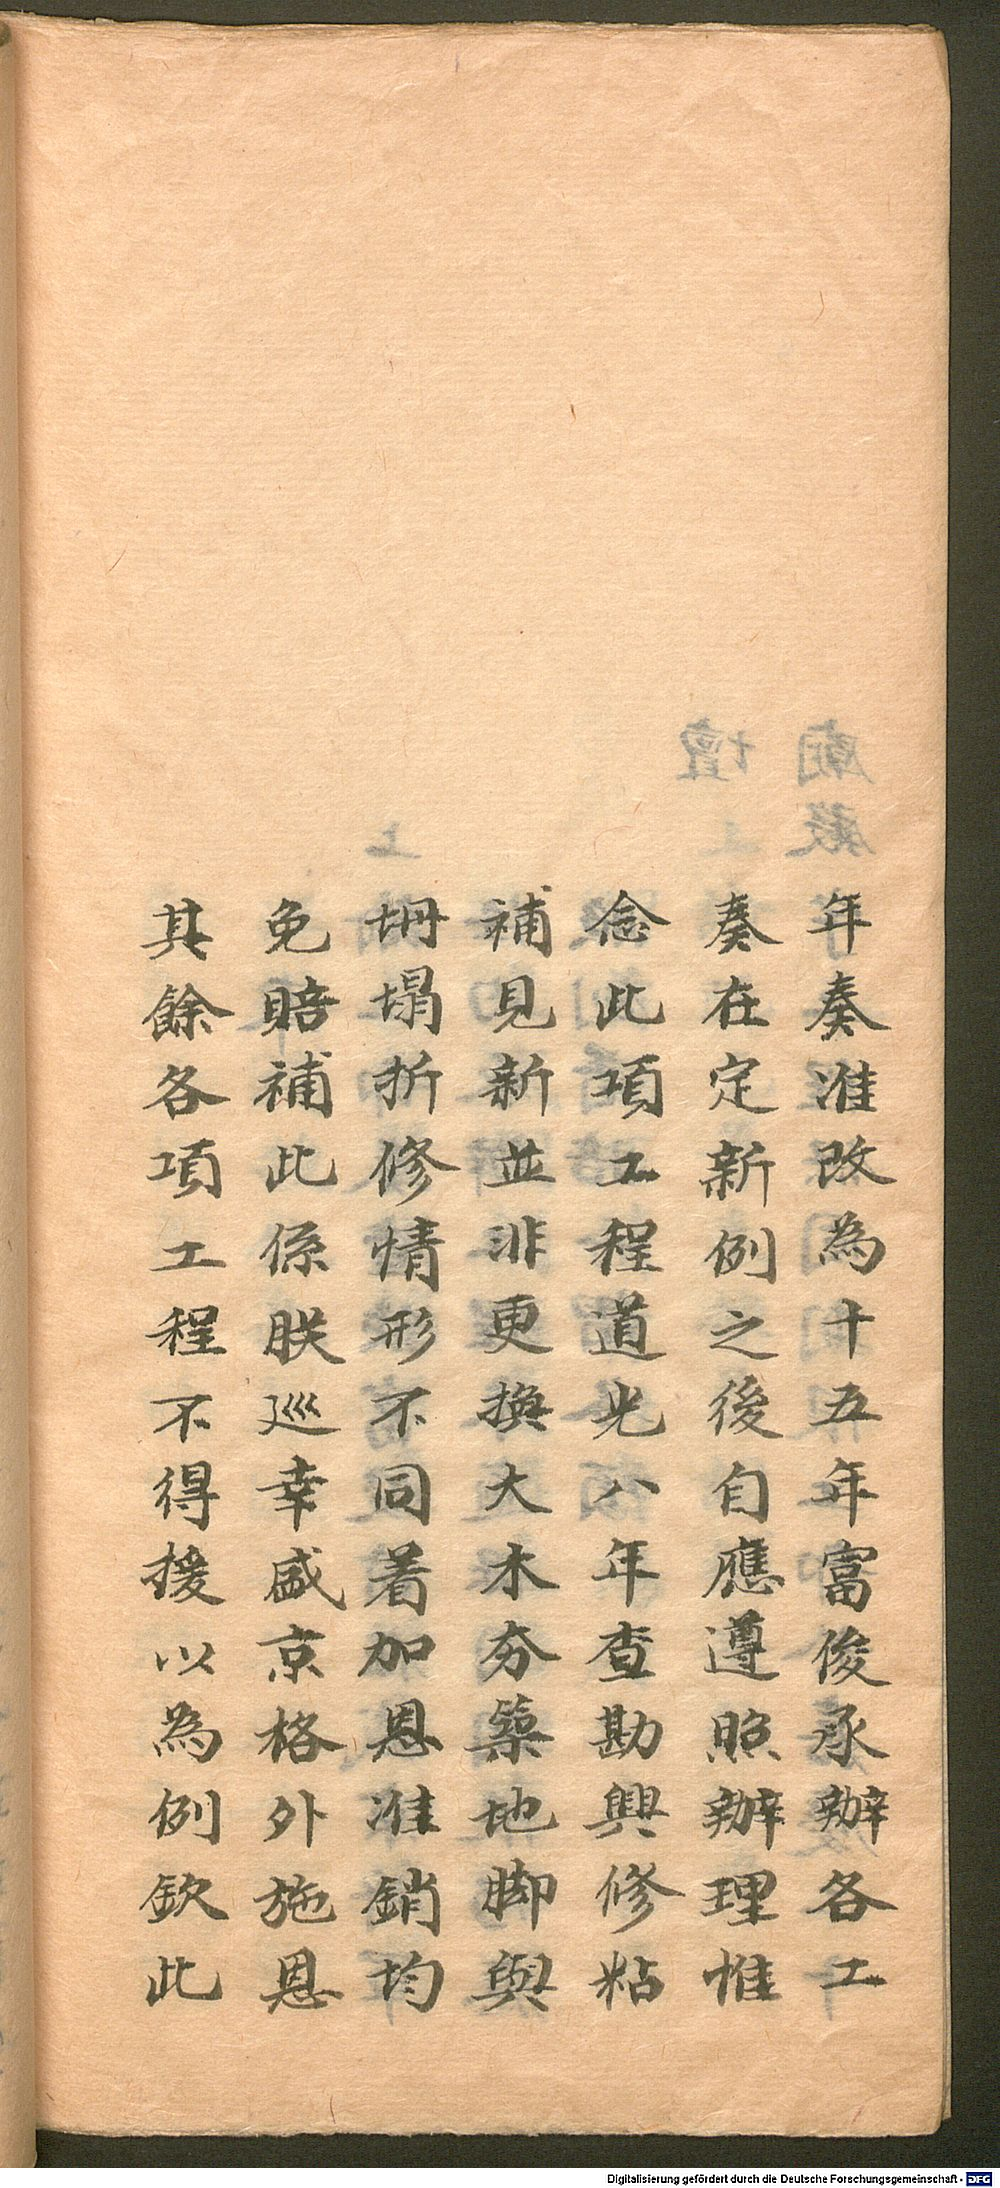 年奏准改為十五年富俊承辦各工
奏在定新例之後自應遵照辦理惟
念此項工程道光八年查勘興修粘
補見新並非更換大木夯築地脚與
坍塌折修情形不同着加恩准銷均
免賠補此係朕巡幸盛京格外施恩
其餘各項工程不得援以為例欽此
Digitalisierung gefördert durch die Deutsche Forschungsgemeinschaft - DFG